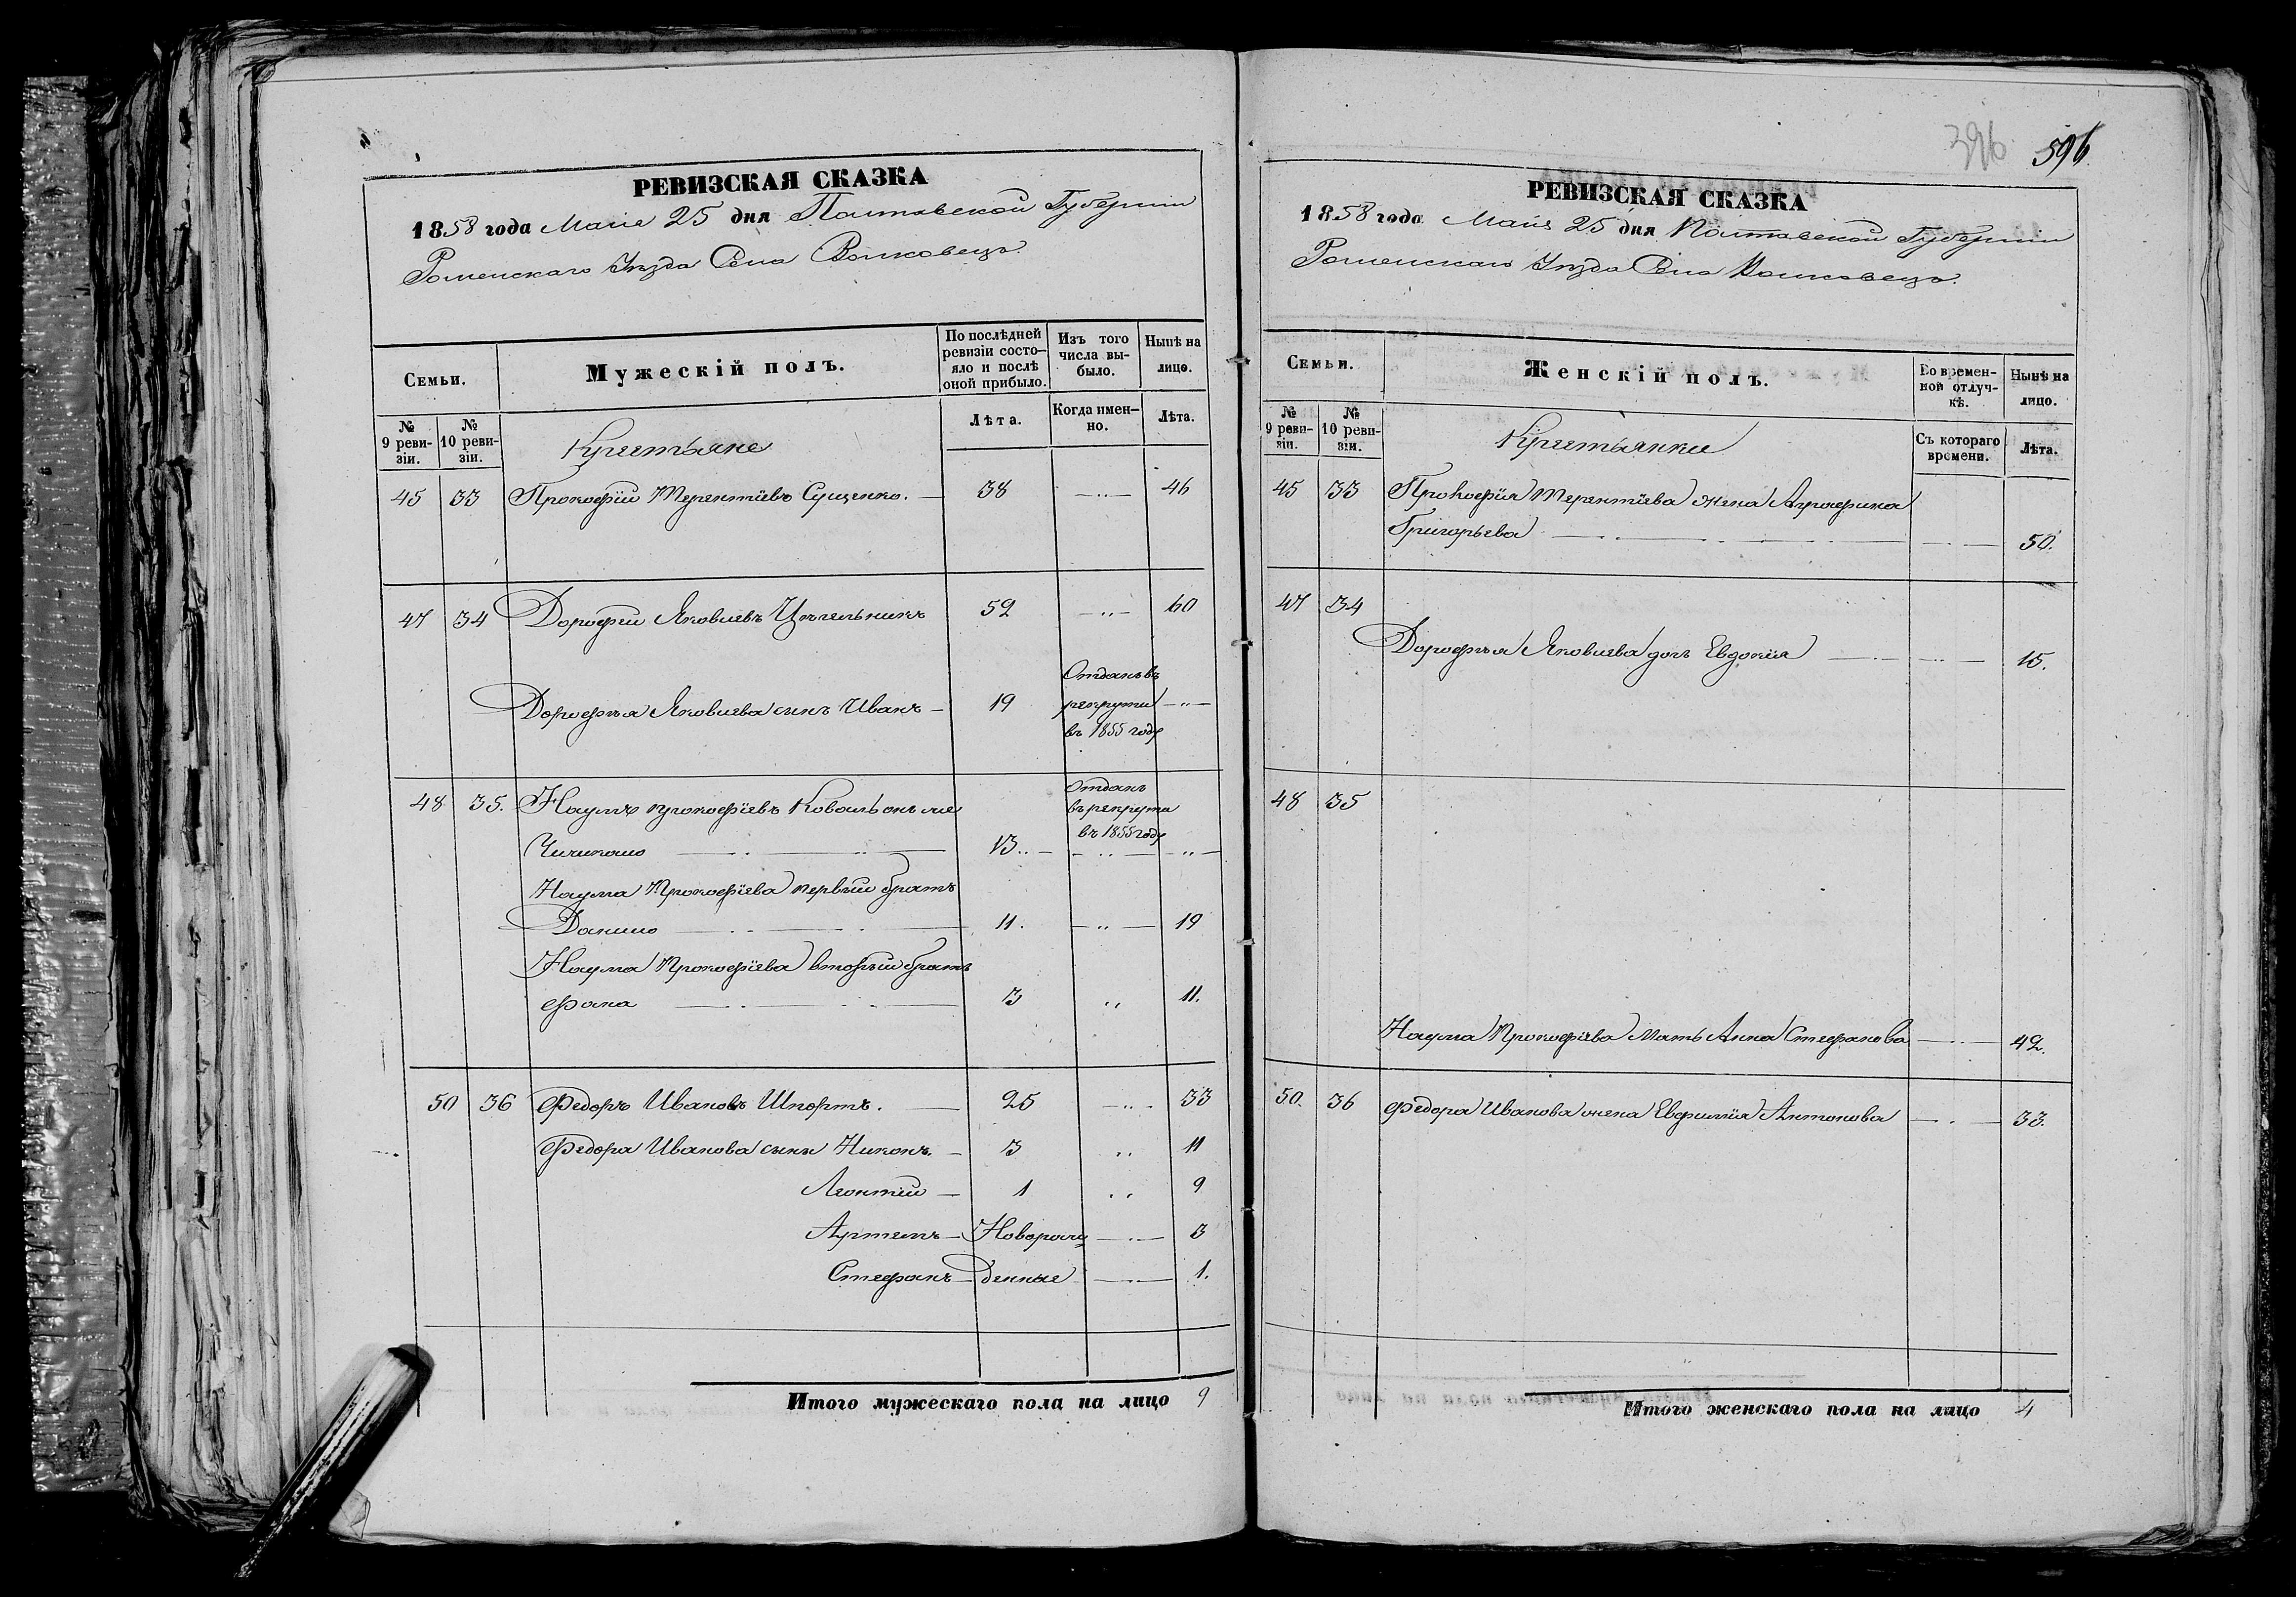 РЕВИЗСКАЯ СКАЗКА
1858 года Маія 25 дня Полтавской Губерніи
Роменскаго Уѣзда Села Волковецъ.
Семьи.
Мужескій полъ.
По послѣдней ревизіи состояло и послѣ оной прибыло.
Изъ того числа выбыло.
Нынѣ на лицо.
№ 9 ревизіи.
№ 10 ревизіи.
Крестьяне
Лѣта.
Когда именно.
Лѣта.
45 33 Прокофій Терентіевъ Сущенко. — 38 — „ — 46
47 34 Дорофей Яковлевъ Цыгельникъ 52 — „ — 60
Дорофѣя Яковлева сынъ Иванъ — 19
Отданъ въ
рекруты — „ —
въ 1855 году
48 35. Наумъ Прокофіевъ Коваль онъ же
Отданъ
въ рекруты
въ 1855 году
13 „ — — „ — — „ —
Наума Прокофіева первый братъ
Данило 11. — „ — 19
Наума Прокофіева вторый братъ
3 „ 11.
50 36 Федоръ Ивановъ Шпортъ. — 25 — „ — 33
Федора Иванова сыны Никонъ. — 3 „ 11
Леонтій — 1 „ 9
Артемъ — Новорож — „ — 3
Стефанъ — денные — „ — 1.
Итого мужескаго пола на лицо 9
396 596.
РЕВИЗСКАЯ СКАЗКА
1858 года Маія 25 дня Полтавской Губерніи
Роменскаго Уѣзда Села Волковецъ.
Семьи.
Женскій полъ.
Во временной отлучкѣ.
Нынѣ на лицо.
№ 9 ревизіи.
№ 10 ревизіи.
Крестьянки
Съ котораго времени.
Лѣта.
45 33 Прокофія Терентіева жена Агрофина
Григорьева — — „ — 50.
47 34
Дорофѣя Яковлева дочь Евдокія — „ — 15.
48 35
Наума Прокофіева Мать Анна Стефанова — „ — 42.
50. 36 Федора Иванова жена Евфимія Антонова — „ — 33.
Итого женскаго пола на лицо 4